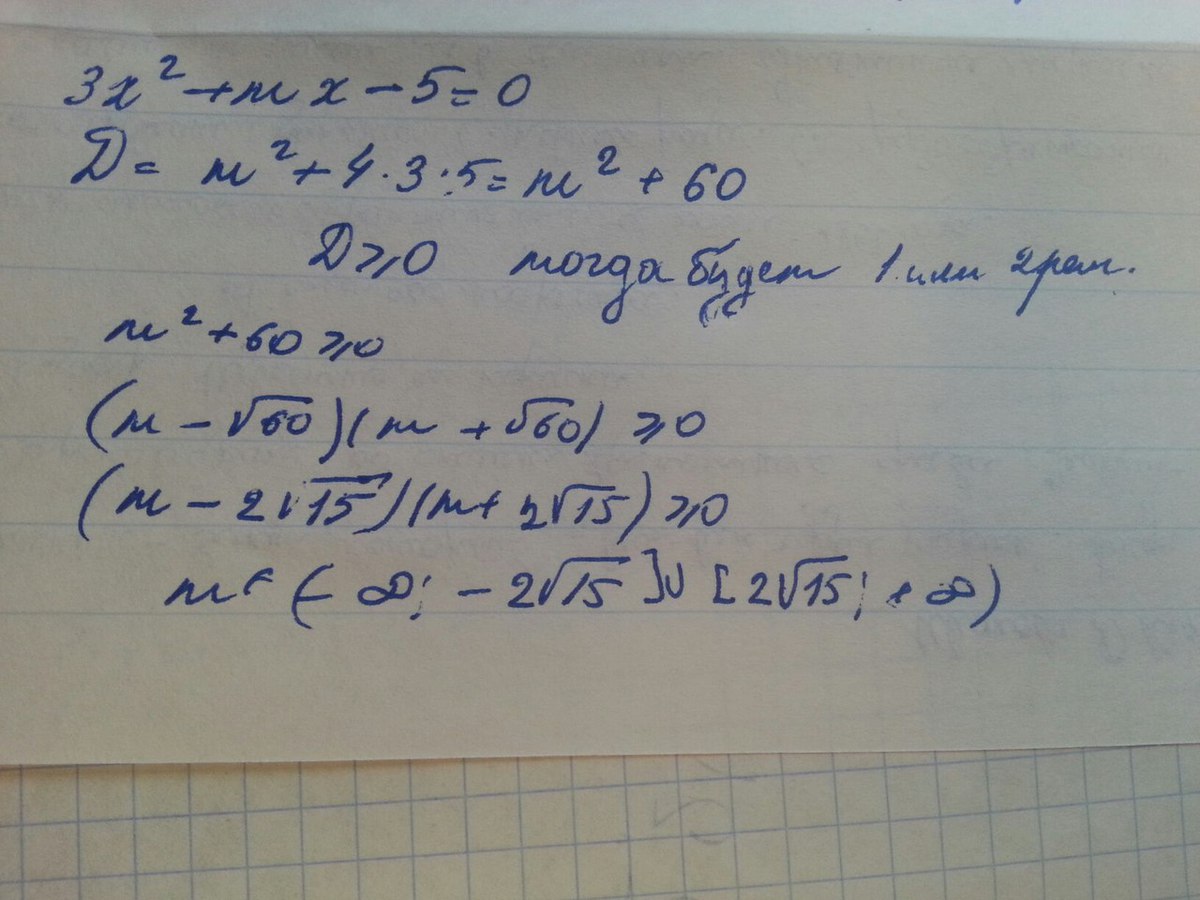 3x² + mx - 5 = 0
D = m² + 4·3·5 = m² + 60
D ⩾ 0 тогда будет 1 или 2 реш.
m² + 60 ⩾ 0
(m - √60)(m + √60) ⩾ 0
(m - 2√15)(m + 2√15) ⩾ 0
m ∈ (-∞; -2√15] ∪ [2√15; +∞)